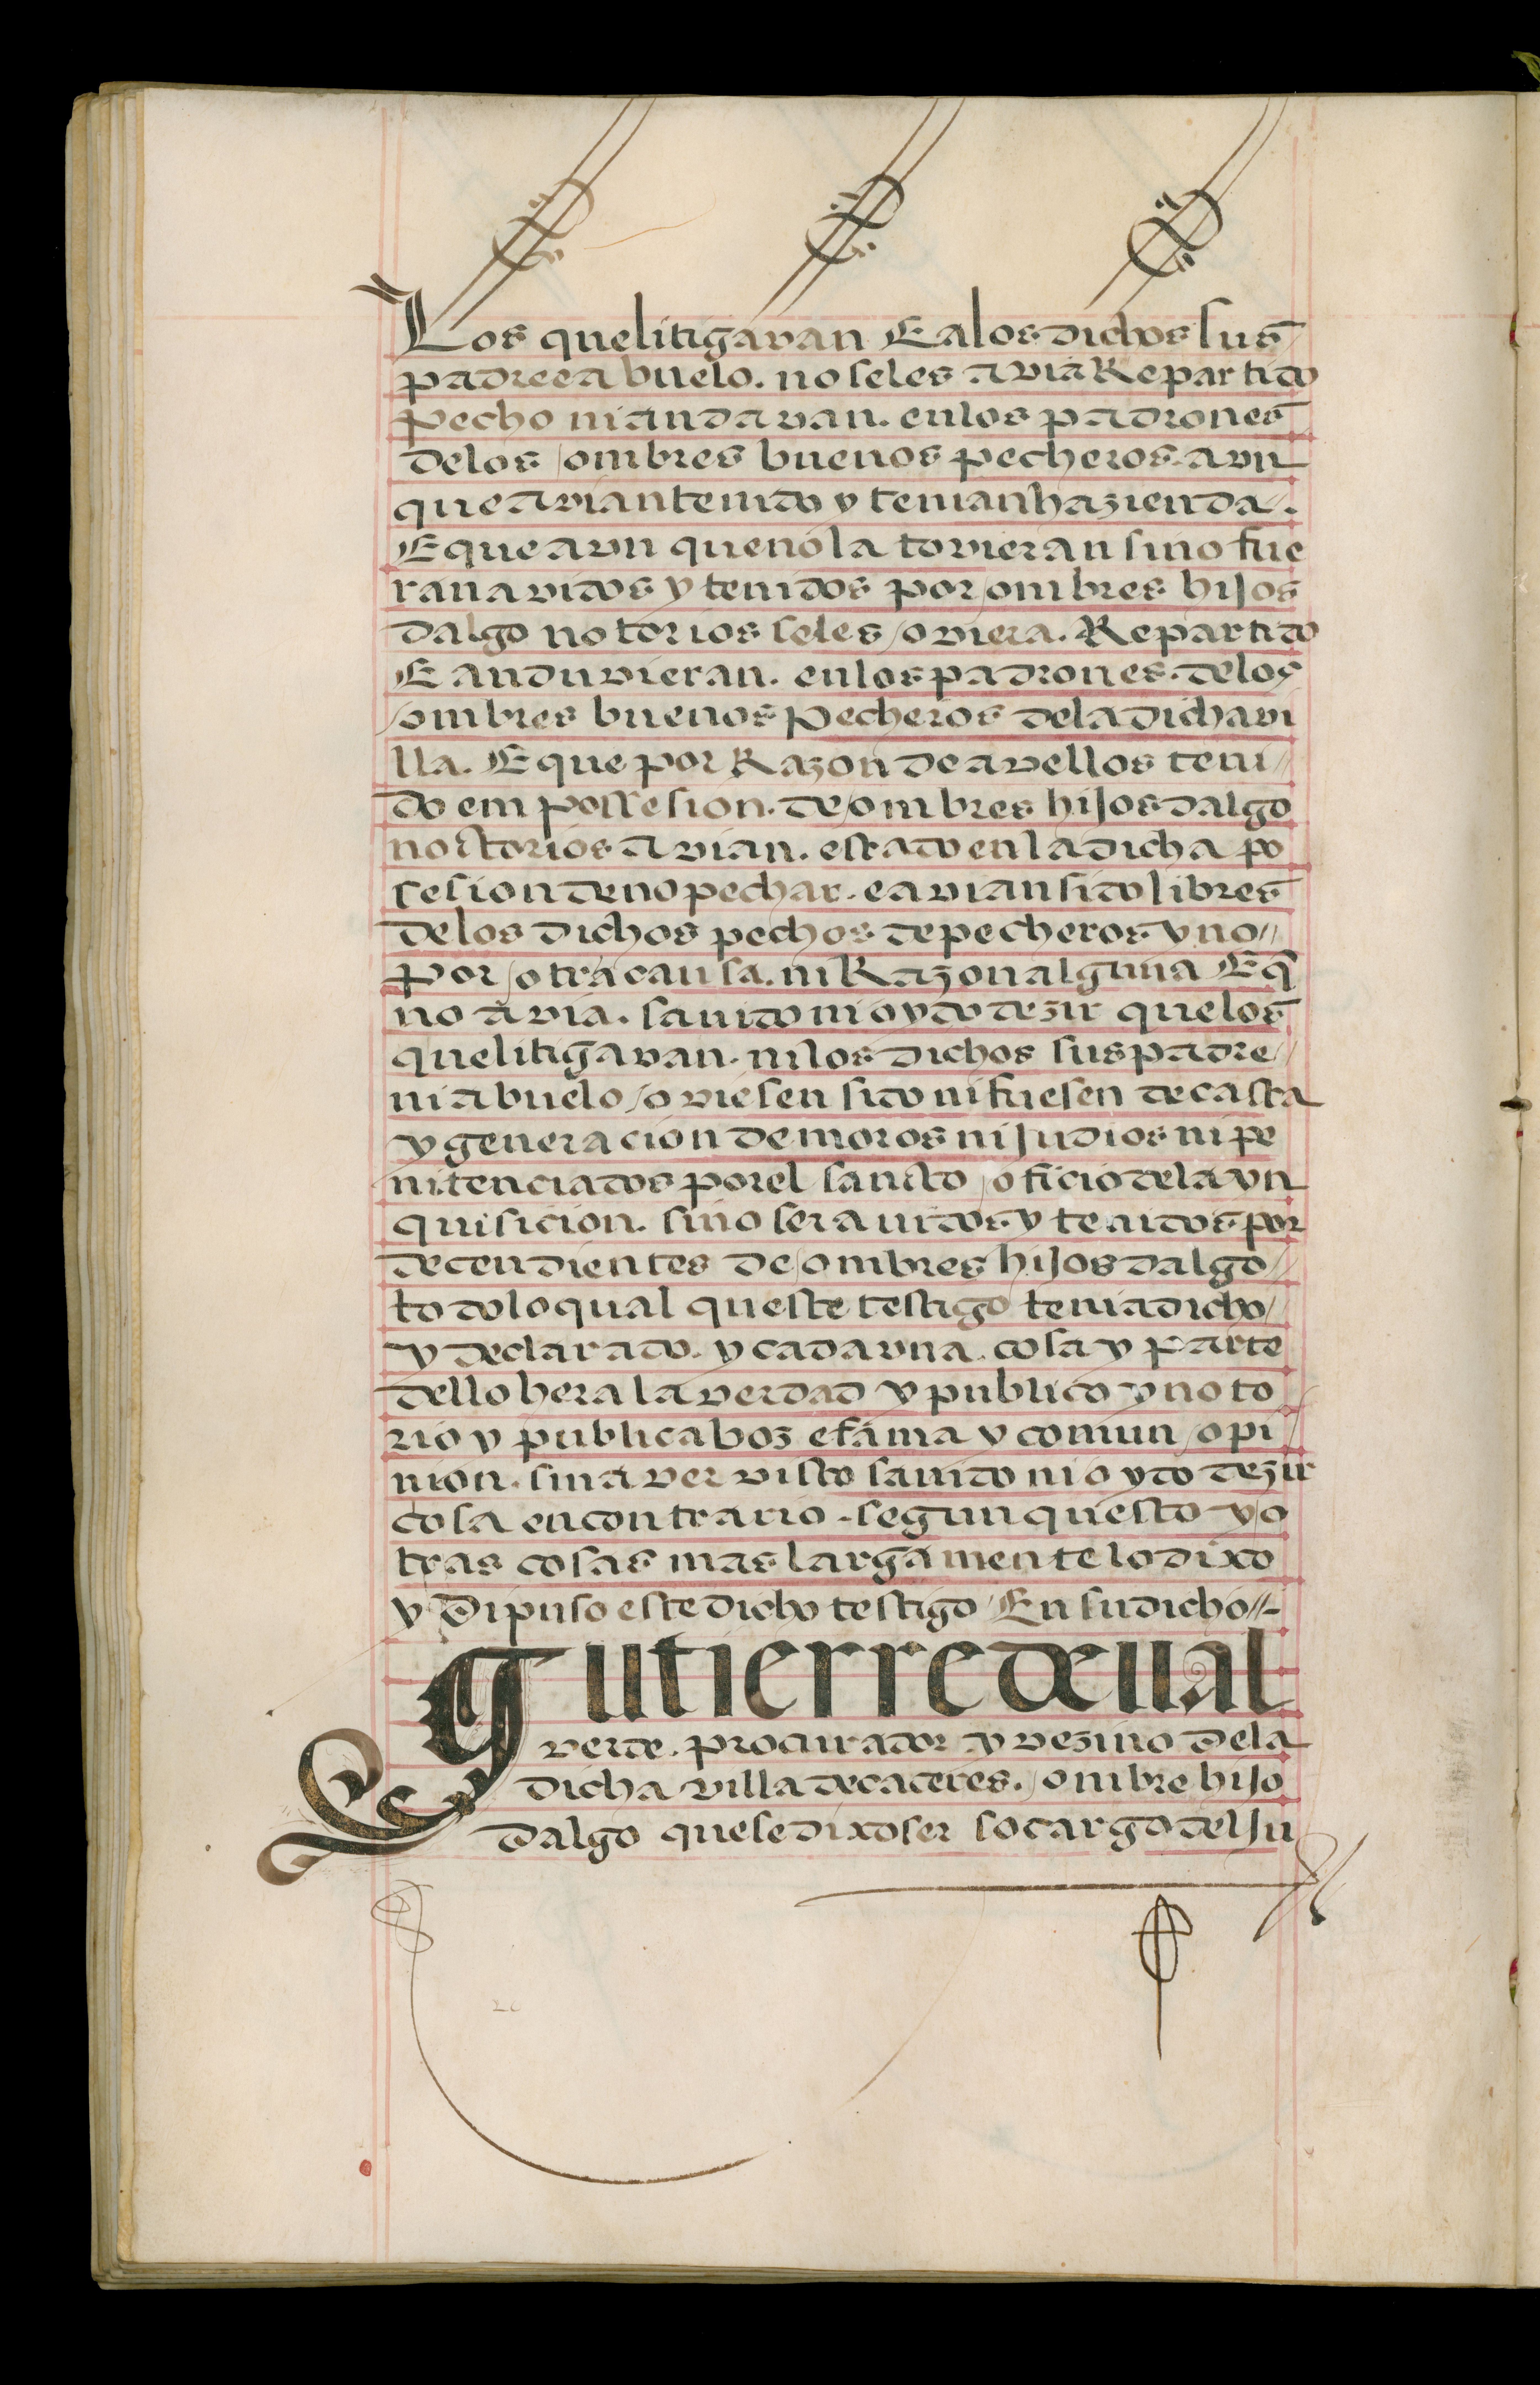 Los que litigavan E a los dichos sus
padre e abuelo. no se les avia Repartido
pecho ni andavan. en los padrones
de los ombres buenos pecheros. avn
que avian tenido y tenian hazienda.
E que avn que no la tovieran si no fue
ran avidos y tenidos por ombres hijos
dalgo notorios se les oviera. Repartido
E anduvieran. en los padrones. de los
ombres buenos pecheros de la dicha vi
lla. E que por Razon de avellos teni
do em possesion. de ombres hijos dalgo
noctorios avian. estado en la dicha po
sesion de no pechar. e avian sido libres
de los dichos pechos de pecheros y no
por otra causa. ni Razon alguna E q̃
no avia. savido ni oydo dezir que los
que litigavan. ni los dichos sus padre
ni abuelo oviesen sido ni fuesen de casta
y generacion de moros ni judios ni pe
nitenciados por el sancto oficio de la yn
quisicion. sino ser avidos y tenidos por
decendientes de ombres hijos dalgo
todo lo qual queste testigo tenia dicho
y declarado. y cada vna. cosa y parte
dello hera la verdad y publico y noto
rio y publica boz e fama y comun opi
nion. sin aver visto savido ni oydo dezir
cosa en contrario. segun questo y o
tras cosas mas largamente lo dixo
y dipuso este dicho testigo En su dicho
Gutierre de val
verde. procurador y vezino de la
dicha villa de caceres. ombre hijo
dalgo que se dixo ser so cargo del ju